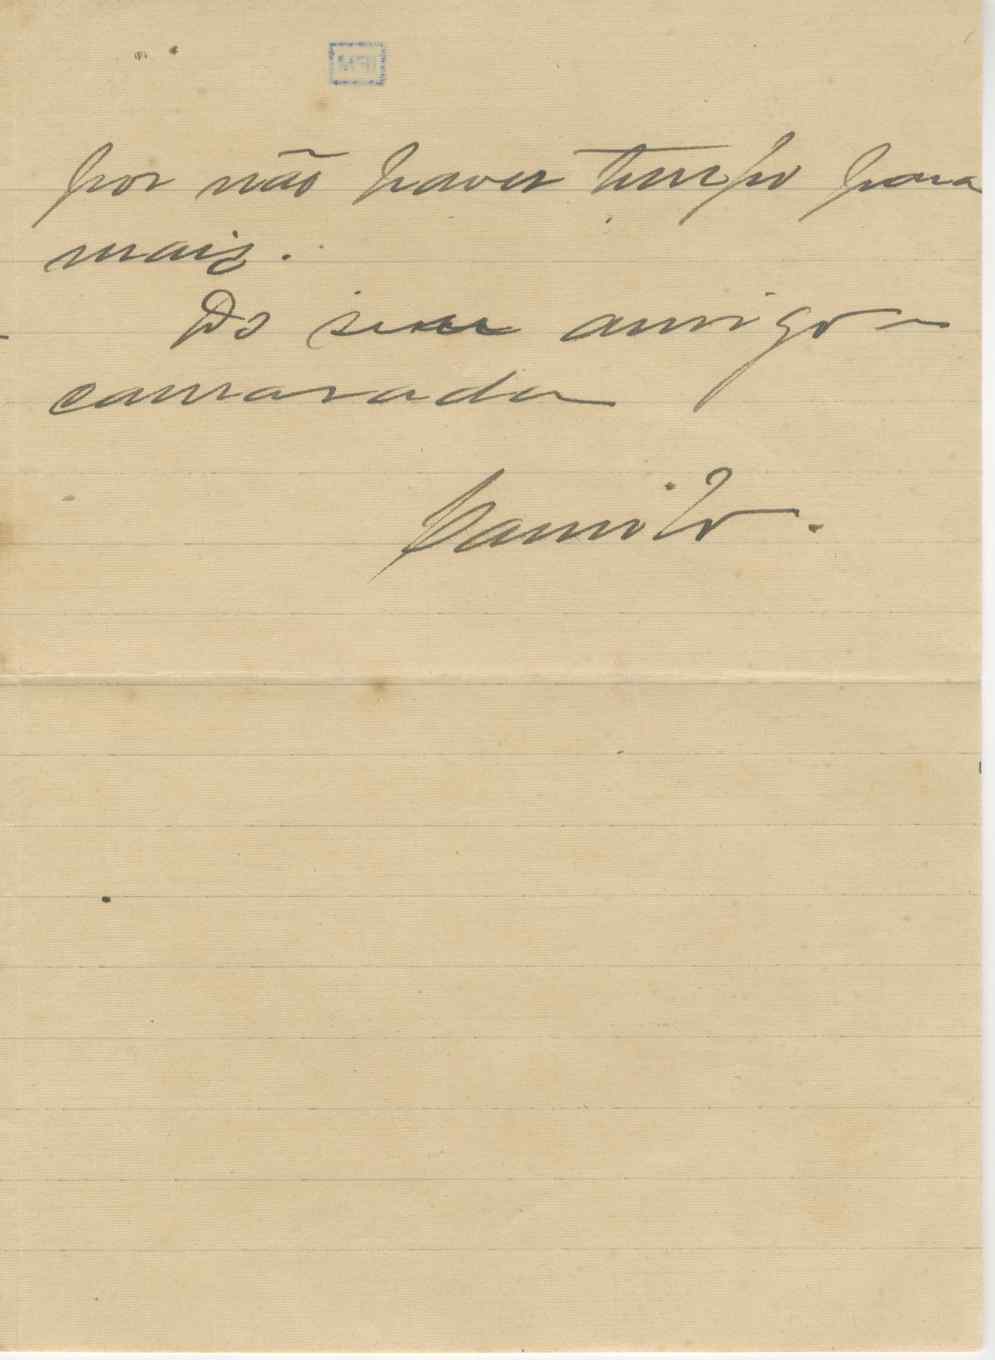 por não haver tempo para
mais.
Do seu amigo e
camarada
Camilo.